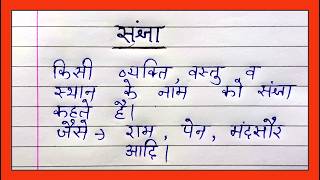 संज्ञा
किसी व्यक्ति, वस्तु व
स्थान के नाम को संज्ञा
कहते हैं।
जैसे → राम, पेन, मंदसौर
आदि।